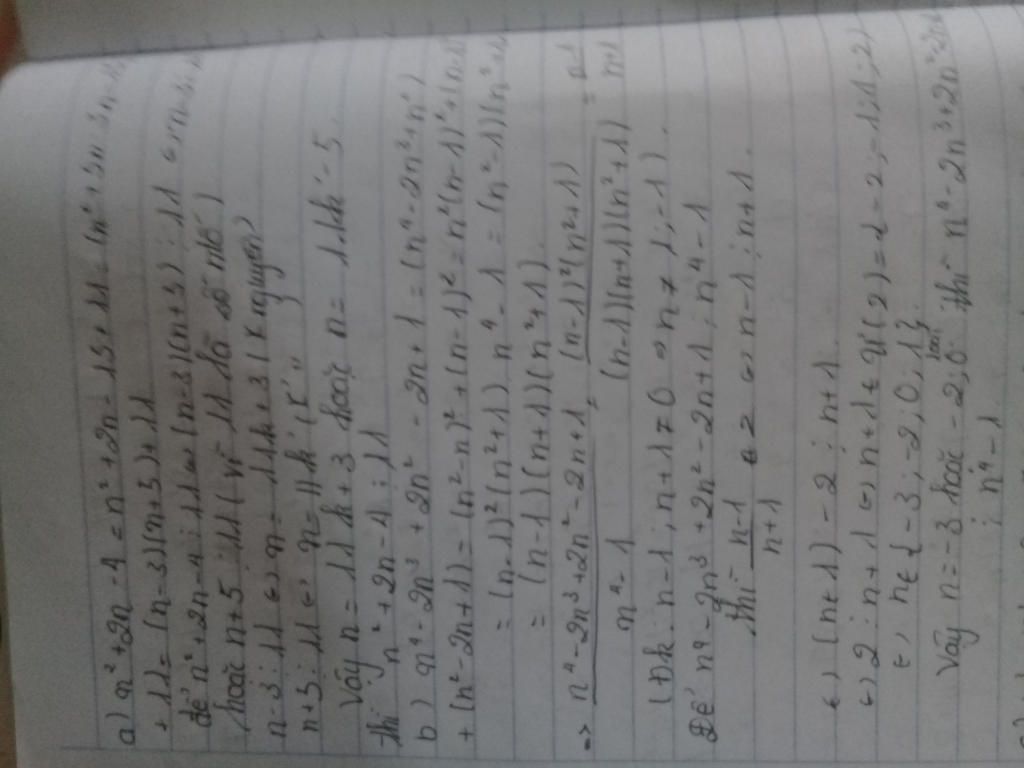 a) n² + 2n - 4 = n² + 2n - 15 + 11 = (n² + 5n - 3n - 15)
+ 11 = (n-3)(n+5) + 11
để n² + 2n - 4 ⋮ 11 ⇔ (n-3)(n+5) ⋮ 11 ⇔ n-3 ⋮ 11
hoặc n+5 ⋮ 11 (vì 11 là số ntố)
n-3 ⋮ 11 ⇔ n = 11k+3 (k nguyên)
n+5 ⋮ 11 ⇔ n = 11k'-5 (k' "
Vậy n = 11k+3 hoặc n = 11k'-5
thì n² + 2n - 4 ⋮ 11
b) n⁴ - 2n³ + 2n² - 2n + 1 = (n⁴ - 2n³ + n²)
+ (n² - 2n + 1) = (n² - n)² + (n-1)² = n²(n-1)² + (n-1)²
= (n-1)²(n²+1). n⁴ - 1 = (n²-1)(n²+1)
= (n-1)(n+1)(n²+1).
=> n⁴ - 2n³ + 2n² - 2n + 1 / n⁴ - 1 = (n-1)²(n²+1) / (n-1)(n+1)(n²+1) = n-1 / n+1
(Đk: n-1; n+1 ≠ 0 => n ≠ 1; -1)
Để n⁴ - 2n³ + 2n² - 2n + 1 ⋮ n⁴ - 1
thì n-1 / n+1 ∈ Z ⇔ n-1 ⋮ n+1.
⇔ (n+1) - 2 ⋮ n+1.
⇔ 2 ⋮ n+1 ⇔ n+1 ∈ Ư(2) = {-2; -1; 1; 2}
⇔ n ∈ {-3; -2; 0; 1}.
loại
Vậy n = -3 hoặc -2, 0 thì n⁴ - 2n³ + 2n² - 2n
⋮ n⁴ - 1